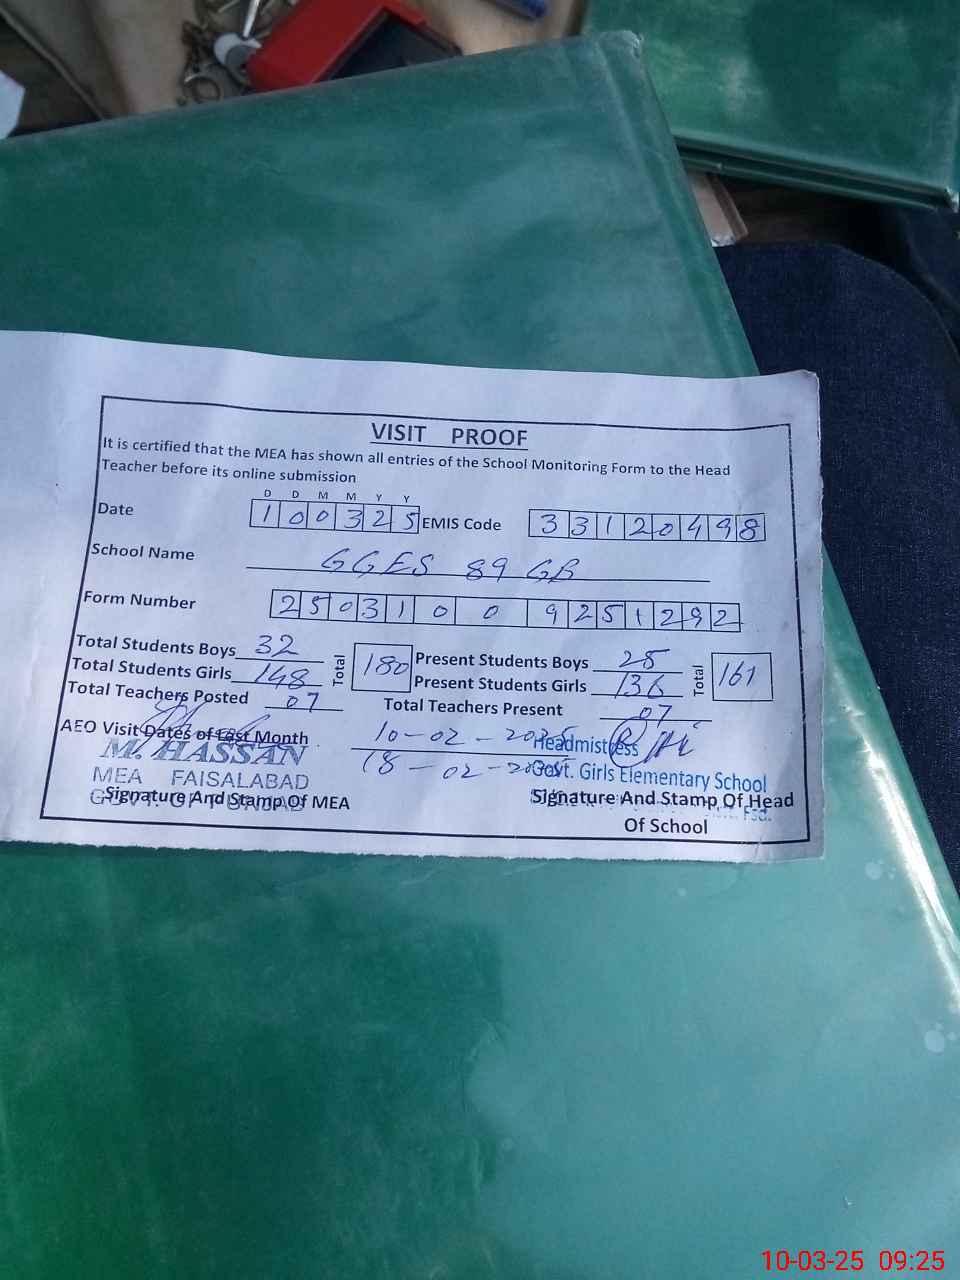 VISIT PROOF
It is certified that the MEA has shown all entries of the School Monitoring Form to the Head
Teacher before its online submission
D D M M Y Y
Date 100325 EMIS Code 33120498
School Name GGES 89 GB
Form Number 25031009251292
Total Students Boys 32 Total 180 Present Students Boys 25 Total 161
Total Students Girls 148 Present Students Girls 136
Total Teachers Posted 07 Total Teachers Present 07
AEO Visit Dates of Last Month 10-02-2025
18-02-2025
M. HASSAN
MEA FAISALABAD
GOVT. OF PUNJAB
Signature And Stamp Of MEA
Headmistress
Govt. Girls Elementary School
Fsd.
Signature And Stamp Of Head
Of School
10-03-25 09:25